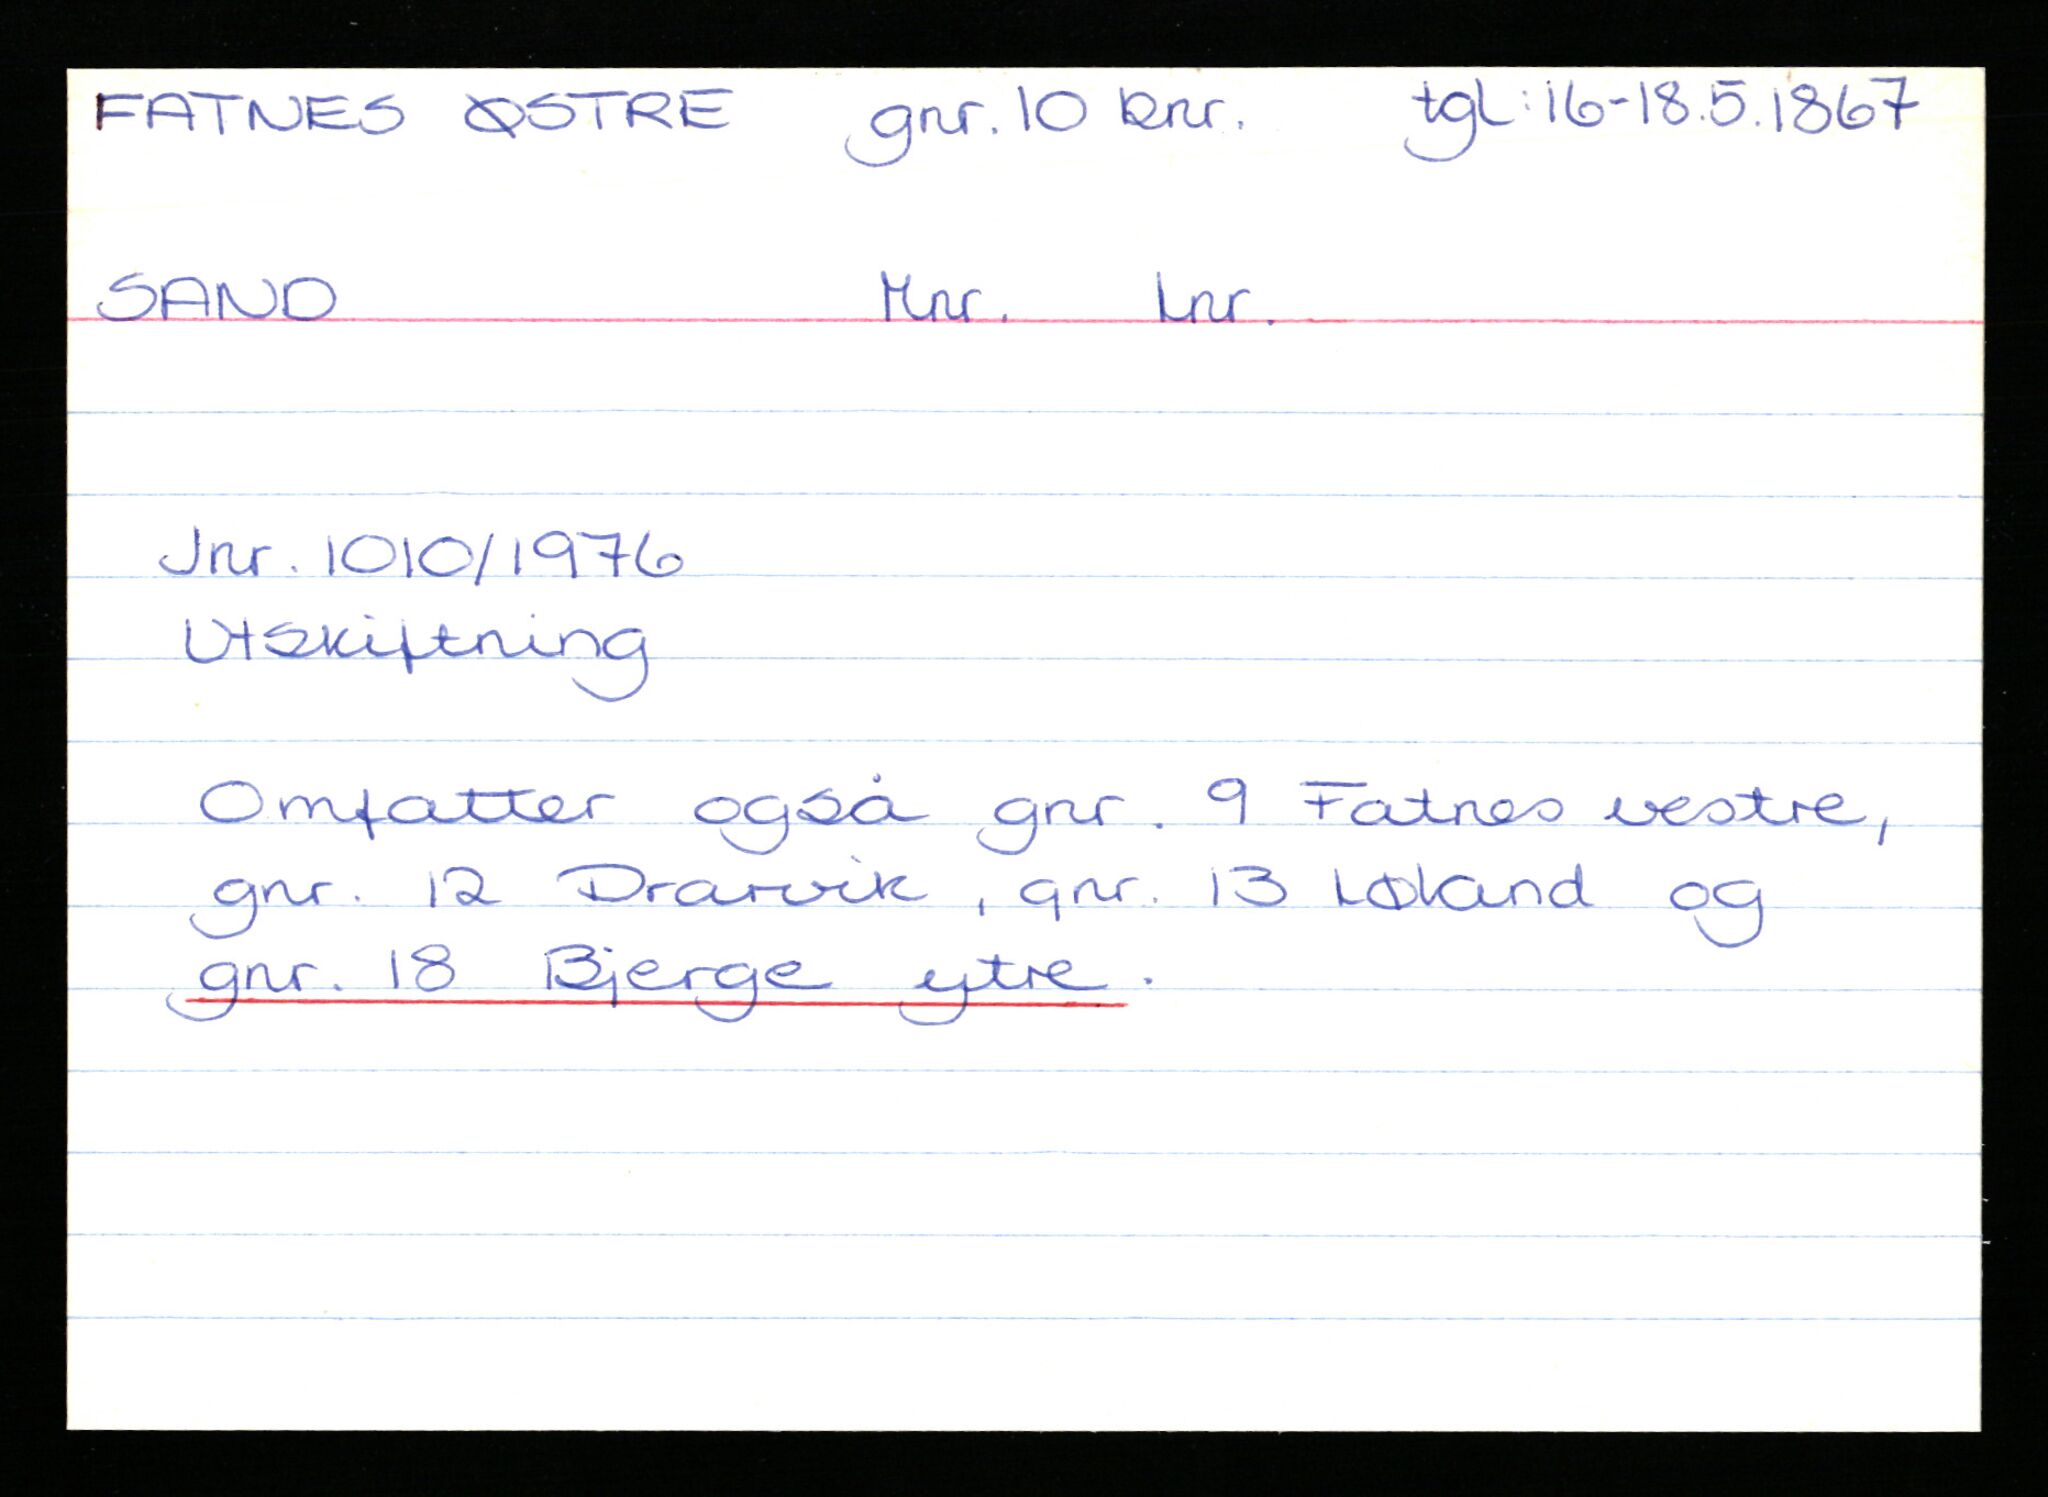 FATNES ØSTRE gnr. 10 bnr. tgl: 16-18.5.1867
SAND Mnr. Lnr.
Jnr. 1010/1976
Utskiftning
Omfatter også gnr. 9 Fatnes vestre,
gnr. 12 Drarvik, gnr. 13 Løland og
gnr. 18 Bjerge ytre.